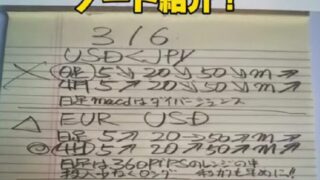 ノート紹介！
3/6
USD<JPY
日足 5↘ 20↘ 50↘ m↗
4H 5↘ 20↘ 50↘ m↗
日足macdはダイバージェンス
△ EUR USD
日足 5↗ 20→ 50↘ m↗
4H 5↗ 20↗ 50↗ m↗
日足は360PIPSのレンジの中